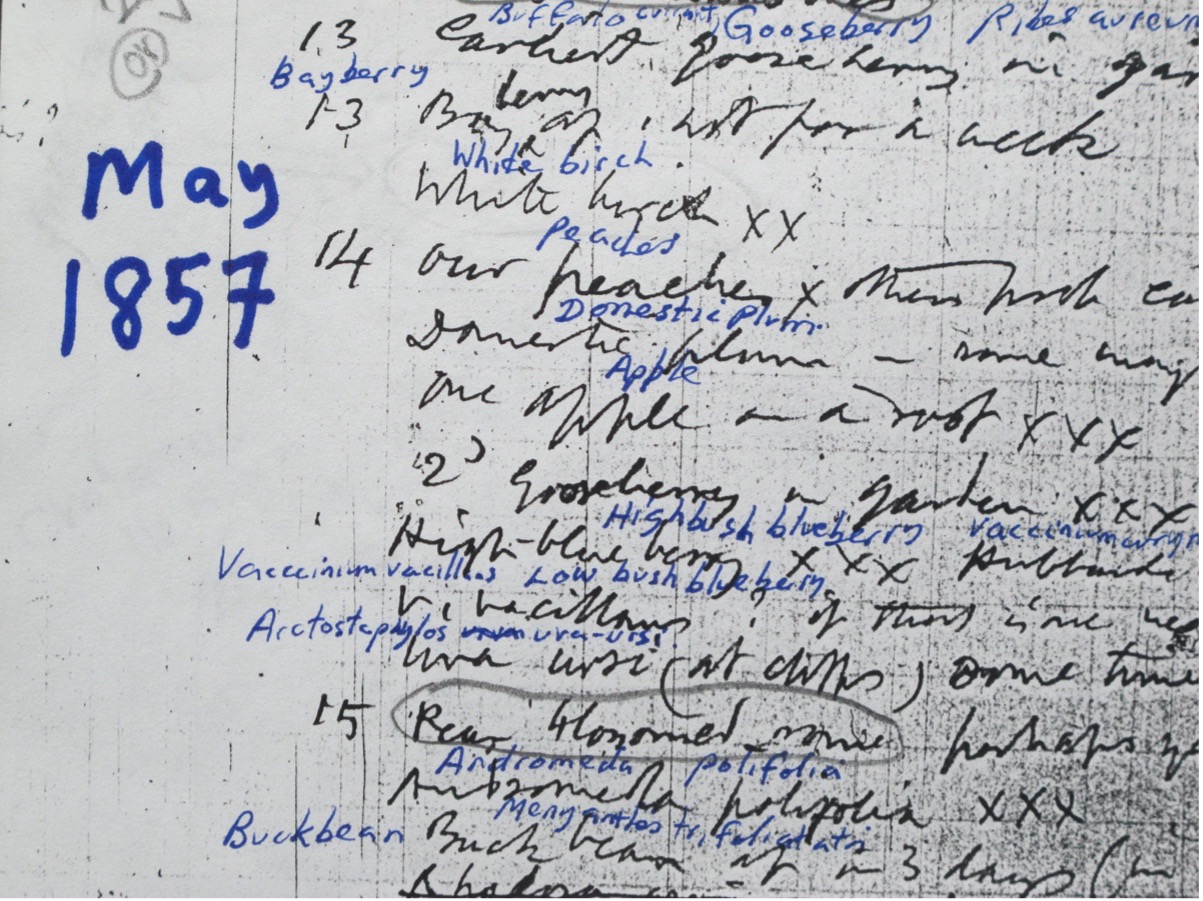 Buffalo currant, Gooseberry Ribes aureu
13 Earliest gooseberry in gar
Bayberry
berry
13 Bay ap, not for a week
White birch
White birch XX
Peaches
14 Our peaches x
Domestic plum
Domestic plum - some may
Apple
One apple on a root XXX
2 Gooseberry in garden XXX
Highbush blueberry vaccinium corym
High-blueberry XXX
Vaccinium vacillas Low bush blueberry
V. vacillans
Arctostapylos uva-ursi
Uva ursi (at cliffs) some time
15 Pear blossomed some perhaps
Andromeda polifolia
Andromeda polifolia XXX
Menyanthes trifoliata
Buckbean Buck bean ap in 3 days (in
May
1857
OK